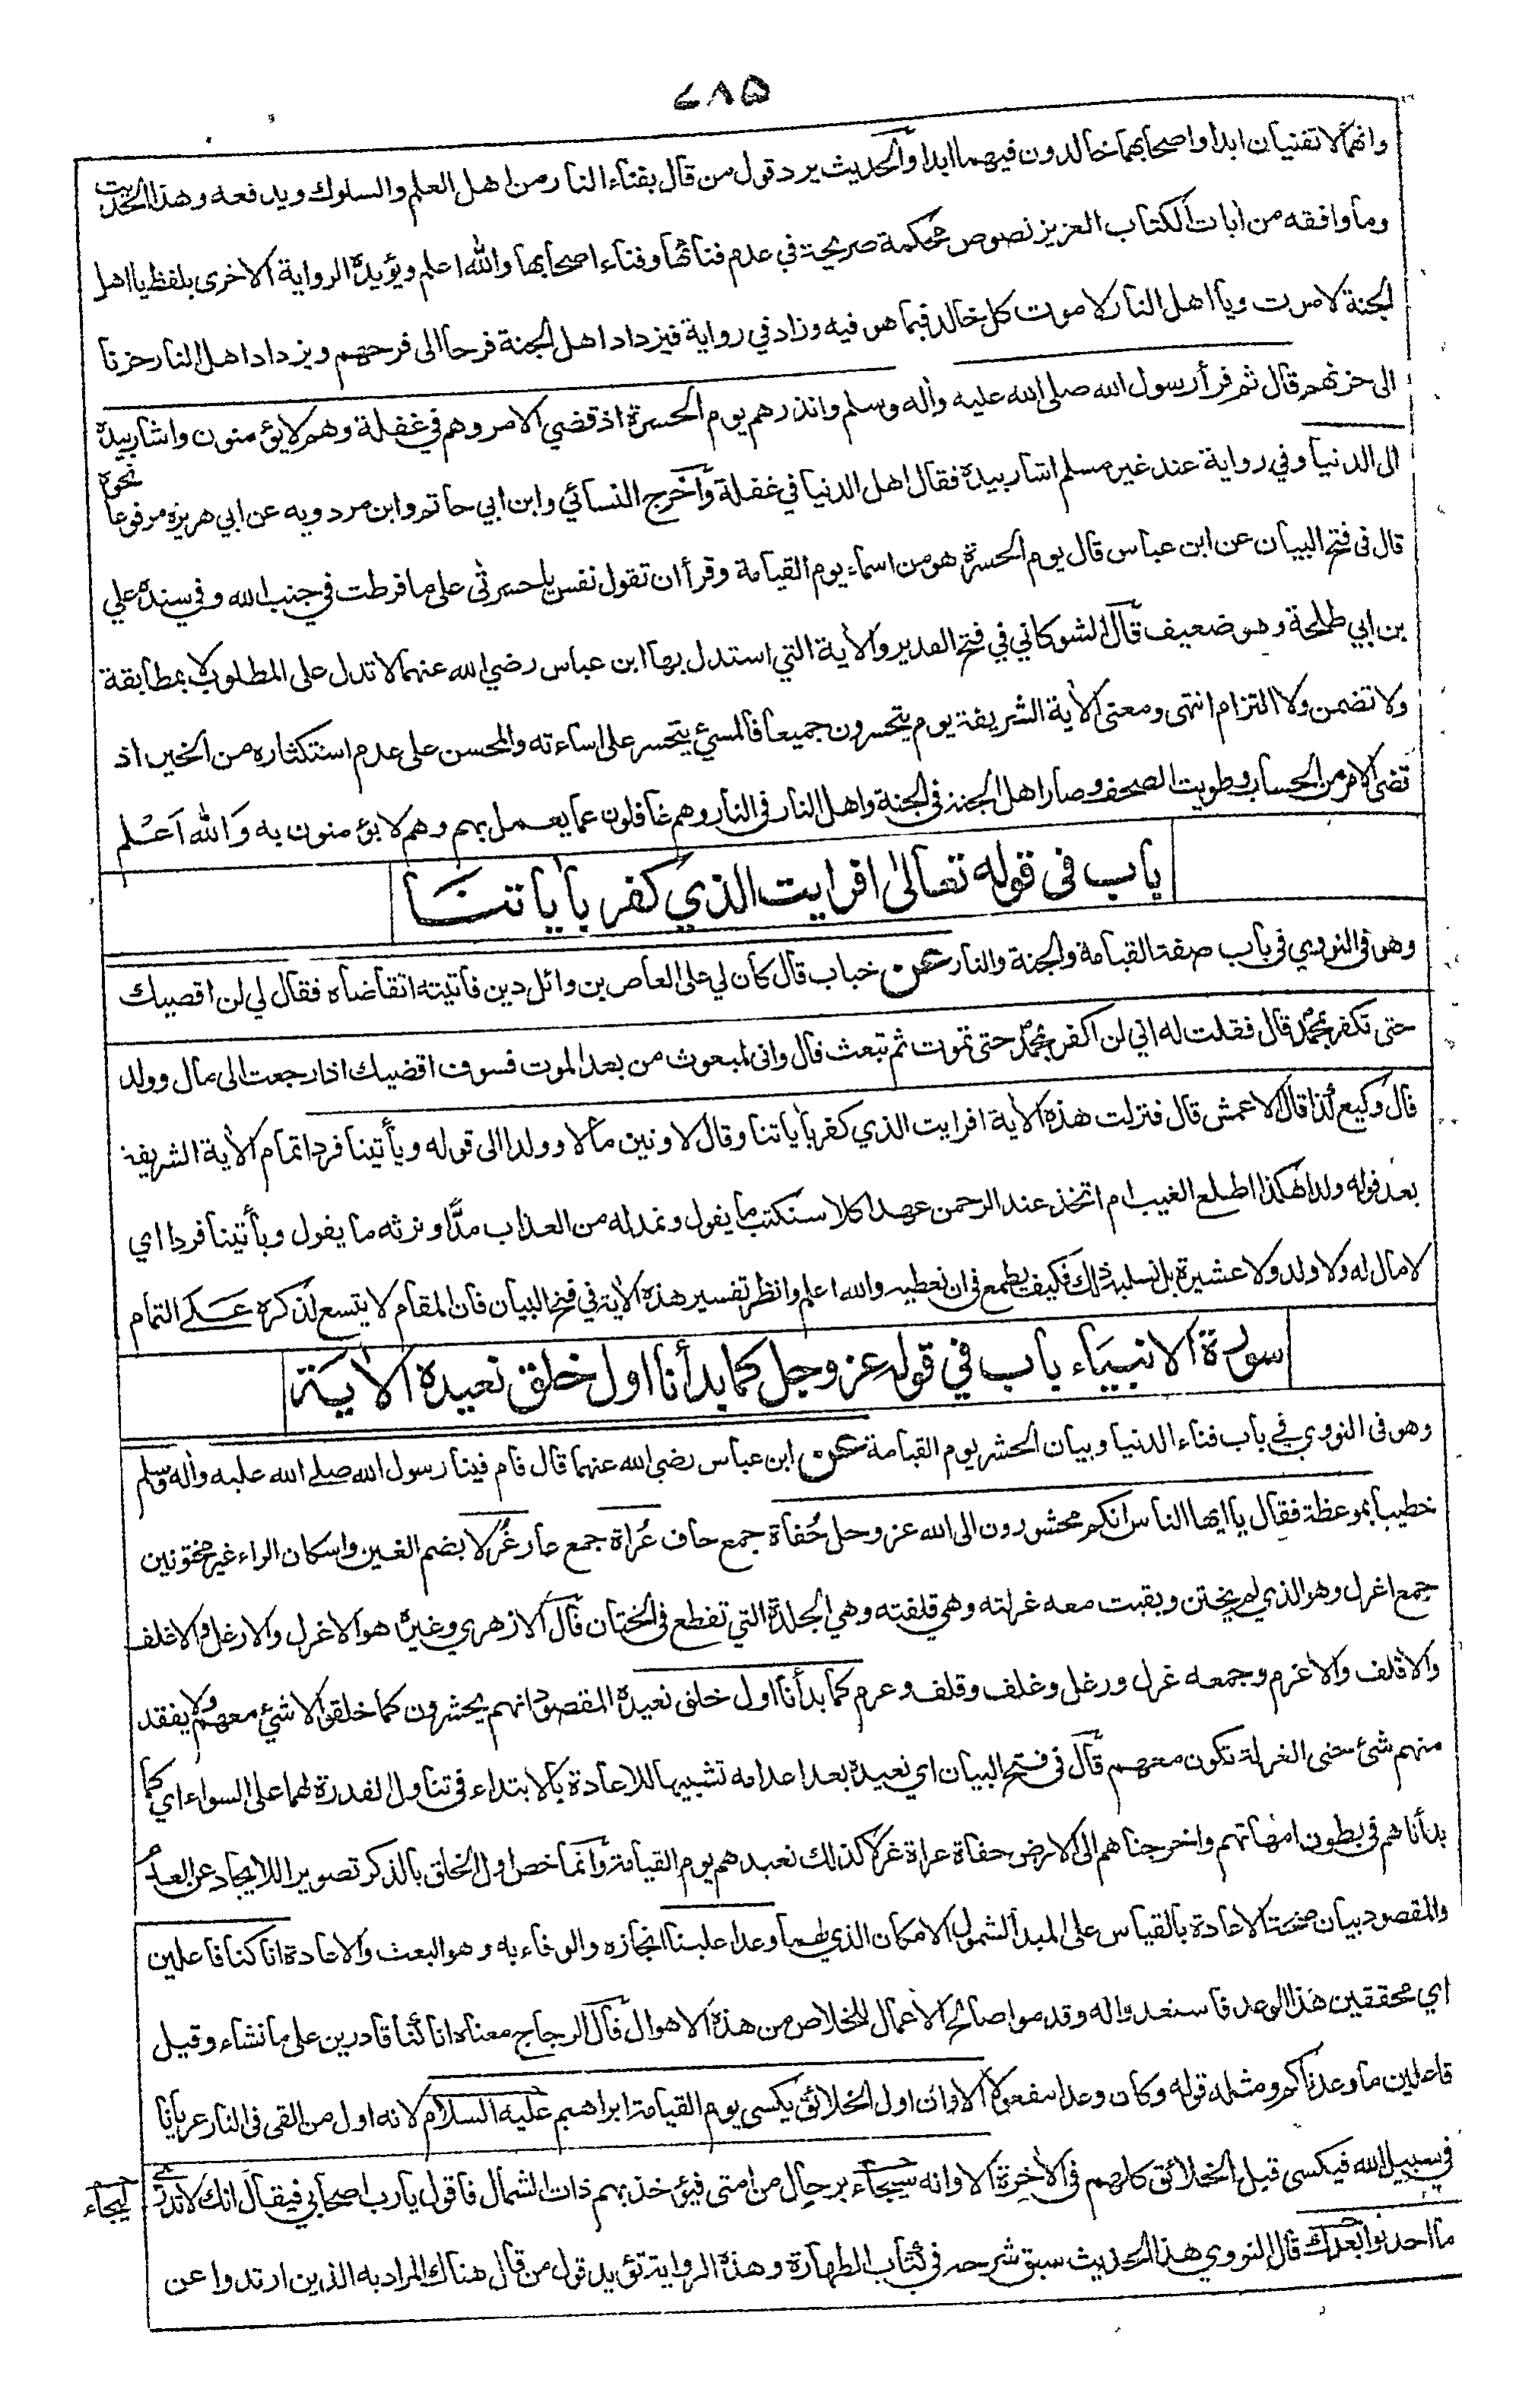 ٧٨٥
وانهما لا تفنيان ابدا واصحابهما خالدون فيهما ابدا والحديث يرد قول من قال بفناء النار من اهل العلم والسلوك ويدفعه وهذا الحديث
وما وافقه من ايات الكتاب العزيز نصوص محكمة صريحة في عدم فنائها وفناء اصحابها والله اعلم ويؤيده الرواية الاخرى بلفظ يا اهل
الجنة لا موت ويا اهل النار لا موت كل خالد فيما هو فيه وزاد في رواية فيزداد اهل الجنة فرحا الى فرحهم ويزداد اهل النار حزنا
الى حزنهم قال ثم قرأ رسول الله صلى الله عليه وأله وسلم وانذرهم يوم الحسرة اذ قضي الامر وهم في غفلة وهم لا يؤمنون واشار بيده
الى الدنيا وفي رواية عند غير مسلم اشار بيده فقال اهل الدنيا في غفلة وأخرج النسائي وابن ابي حاتم وابن مردويه عن ابي هريرة مرفوعا نحوه
قال في فتح البيان عن ابن عباس قال يوم الحسرة هو من اسماء يوم القيامة وقرأ ان تقول نفس يا حسرتى على ما فرطت في جنب الله وفي سنده علي
بن ابي طلحة وهو ضعيف قال الشوكاني في فتح القدير والأية التي استدل بها ابن عباس رضي الله عنهما لا تدل على المطلوب لا بمطابقة
ولا تضمن ولا التزام انتهى ومعنى الأية الشريفة يوم يتحسرون جميعا فالمسيئ يتحسر على اساءته والمحسن على عدم استكثاره من الخير اذ
قضى الامر من الحساب وطويت الصحف وصار اهل الجنة في الجنة واهل النار في النار وهم غافلون عما يعمل بهم وهم لا يؤمنون به وَالله اَعْلم
باب في قوله تعالى افرايت الذي كفر بأياتنَا
وهو في النووي في باب صفة القيامة والجنة والنار عن خباب قال كان لي على العاص بن وائل دين فاتيته اتقاضاه فقال لي لن اقضيك
حتى تكفر بمحمد قال فقلت له اني لن اكفر بمحمد حتى تموت ثم تبعث قال واني لمبعوث من بعد الموت فسوف اقضيك اذا رجعت الى مال وولد
قال وكيع كذا قال الاعمش قال فنزلت هذه الأية افرايت الذي كفر بأياتنا وقال لاوتين مالا وولدا الى قوله ويأتينا فردا تمام الأية الشريفة
بعد قوله ولدا هكذا اطلع الغيب ام اتخذ عند الرحمن عهدا كلا سنكتب ما يقول ونمد له من العذاب مدًّا ونرثه ما يقول ويأتينا فردا اي
لا مال له ولا ولد ولا عشيرة بل نسلبه ذلك فكيف يطمع في ان نعطيه والله اعلم وانظر تفسير هذه الأية في فتح البيان فان المقام لا يتسع لذكره عَلى التمام
سورة الانبيَاء باب في قوله عز وجل كما بدأنا اول خلق نعيده الأيَة
وهو في النووي في باب فناء الدنيا وبيان الحشر يوم القيامة عن ابن عباس رضي الله عنهما قال قام فينا رسول الله صلے الله عليه وأله وسلم
خطيبا بموعظة فقال يا ايها الناس انكم محشورون الى الله عز وجل حُفاة جمع حاف عُراة جمع عار غُرلا بضم الغين واسكان الراء غير مختونين
جمع اغرل وهو الذي لم يختن وبقيت معه غرلته وهي قلفته وهي الجلدة التي تقطع في الختان قال الازهري وغيره هو الاغرل والارغل والاغلف
والاقلف والاعرم وجمعه غرل ورغل وغلف وقلف وعرم كما بدأنا اول خلق نعيده المقصود انهم يحشرون كما خلقوا لا شئ معهم ولا يفقد
منهم شئ حتى الغرلة تكون معهم قال في فتح البيان اي نعيده بعد اعدامه تشبيها للاعادة بالابتداء في تناول القدرة لهما على السواء اي كما
بدأناهم في بطون امهاتهم واخرجناهم الى الارض حفاة عراة غرلا كذلك نعيدهم يوم القيامة وانما خص اول الخلق بالذكر تصويرا للايجاد عن العدم
والمقصود بيان صحة الاعادة بالقياس على المبدأ لشمول الامكان الذي لهما وعدا علينا انجازه والوفاء به وهو البعث والاعادة انا كنا فاعلين
اي محققين هذا الوعد فاستعدوا له وقدموا صالح الاعمال للخلاص من هذه الاهوال قال الزجاج معناه انا كنا قادرين على ما نشاء وقيل
فاعلين ما وعدناكم ومثله قوله وكان وعدا مفعولا الا وان اول الخلائق يكسى يوم القيامة ابراهيم عليه السلام لانه اول من القى في النار عريانا
في سبيل الله فيكسى قبل الخلائق كلهم في الأخِرة الا وانه سيجاء برجال من امتى فيؤخذ بهم ذات الشمال فاقول يا رب اصحابي فيقال انك لا تدري
ليجاء
ما احدثوا بعدك قال النووي هذا الحديث سبق شرحه في كتاب الطهارة وهذه الرواية تؤيد قول من قال هناك المراد به الذين ارتدوا عن